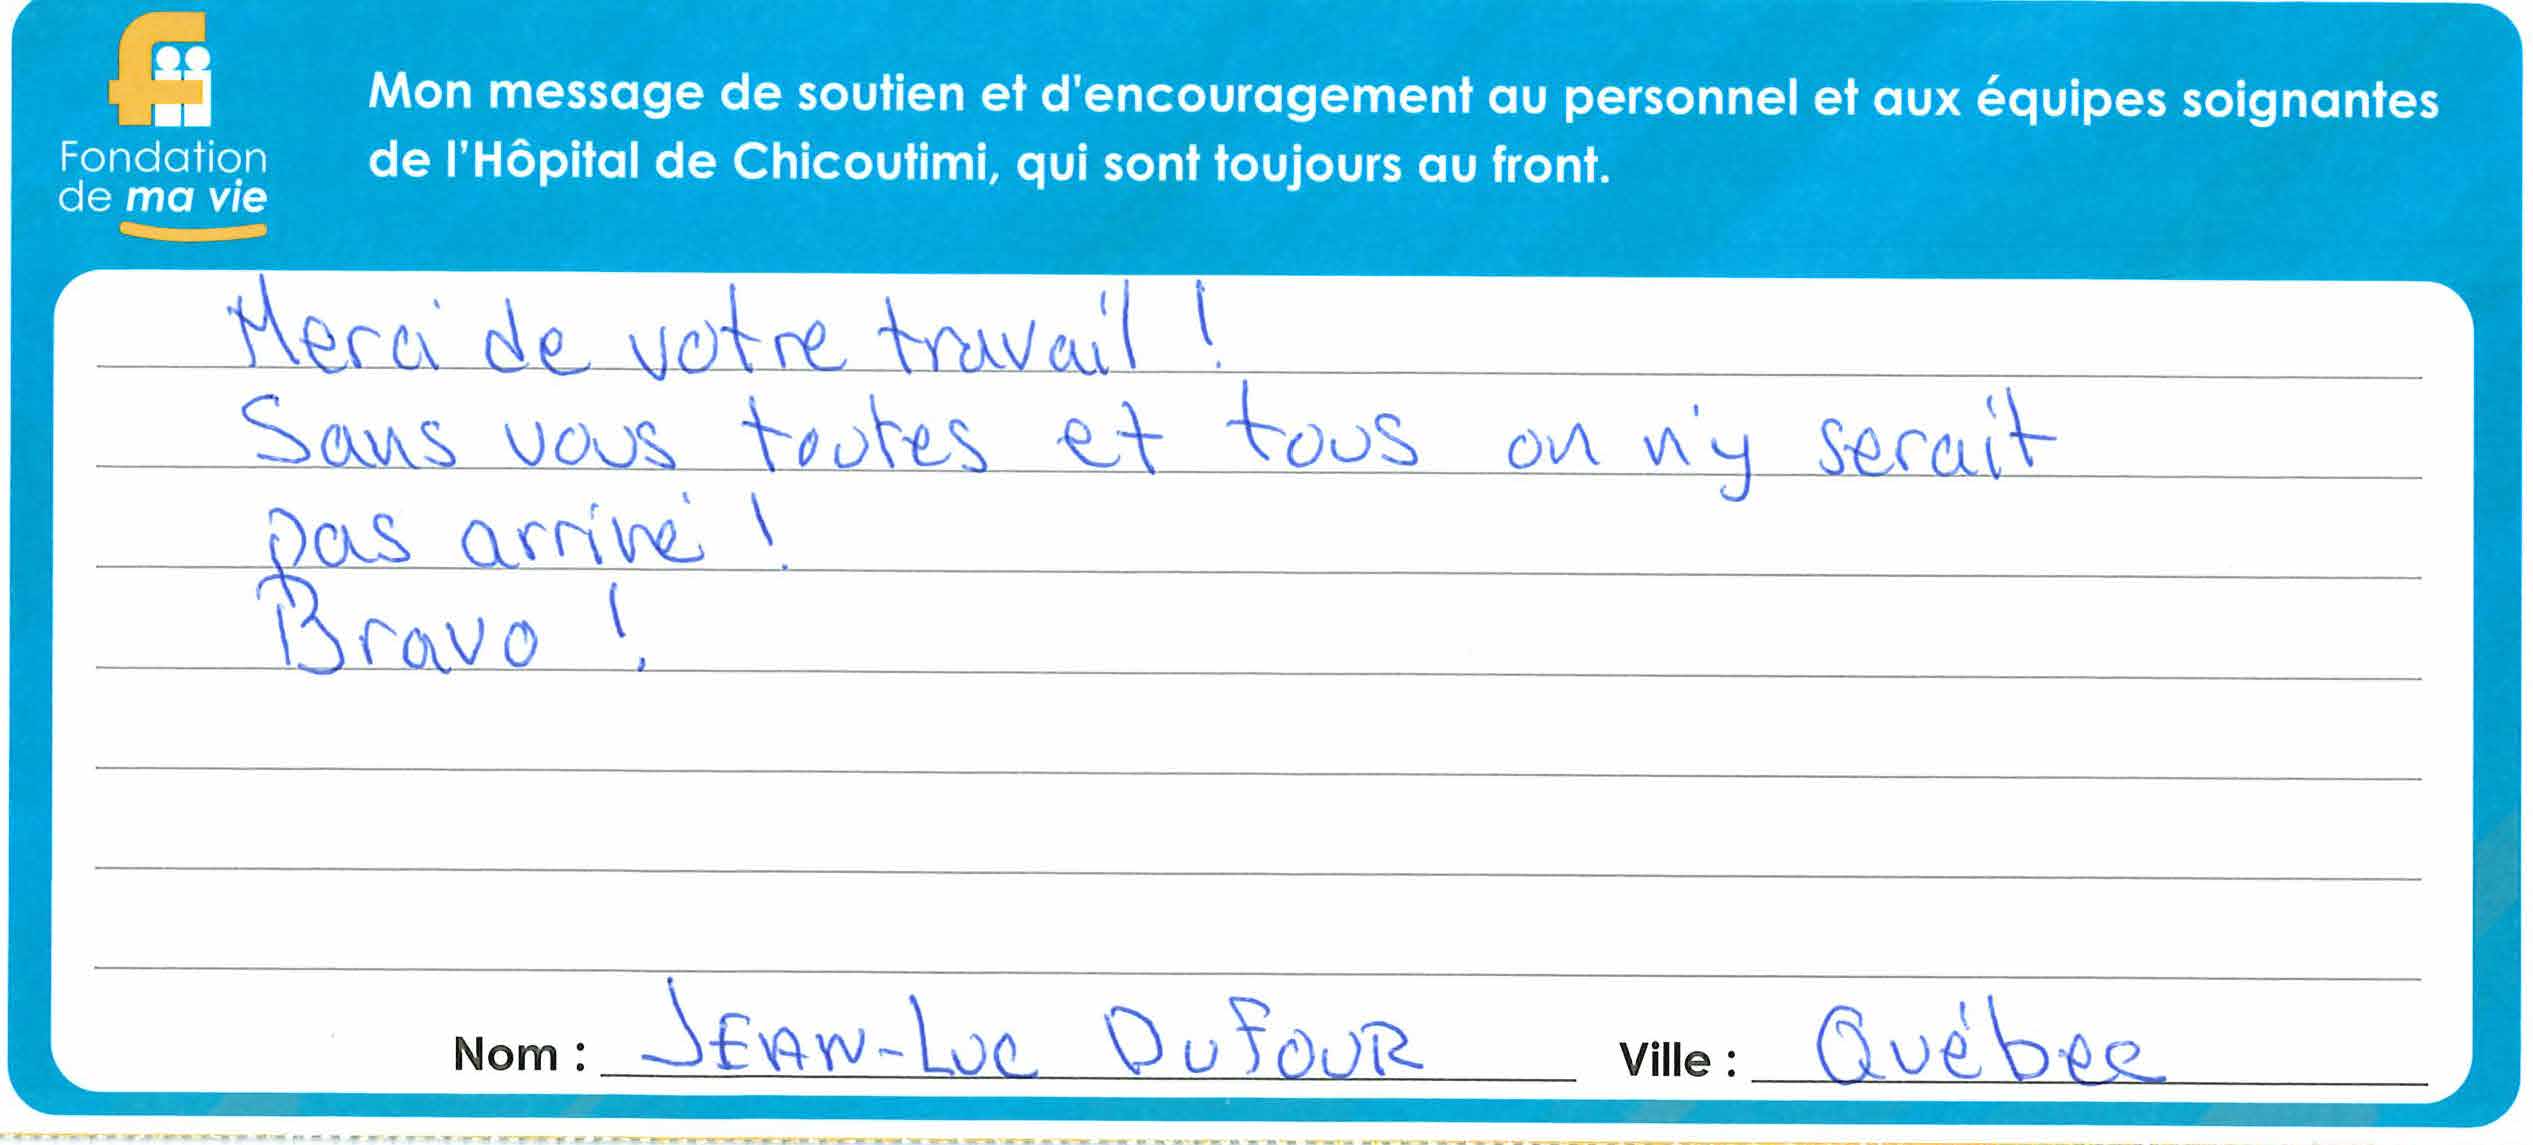 Fondation
de ma vie
Mon message de soutien et d'encouragement au personnel et aux équipes soignantes
de l'Hôpital de Chicoutimi, qui sont toujours au front.
Merci de votre travail !
Sans vous toutes et tous on n'y serait
pas arrivé !
Bravo !
Nom : JEAN-LUC DUFOUR Ville : Québec